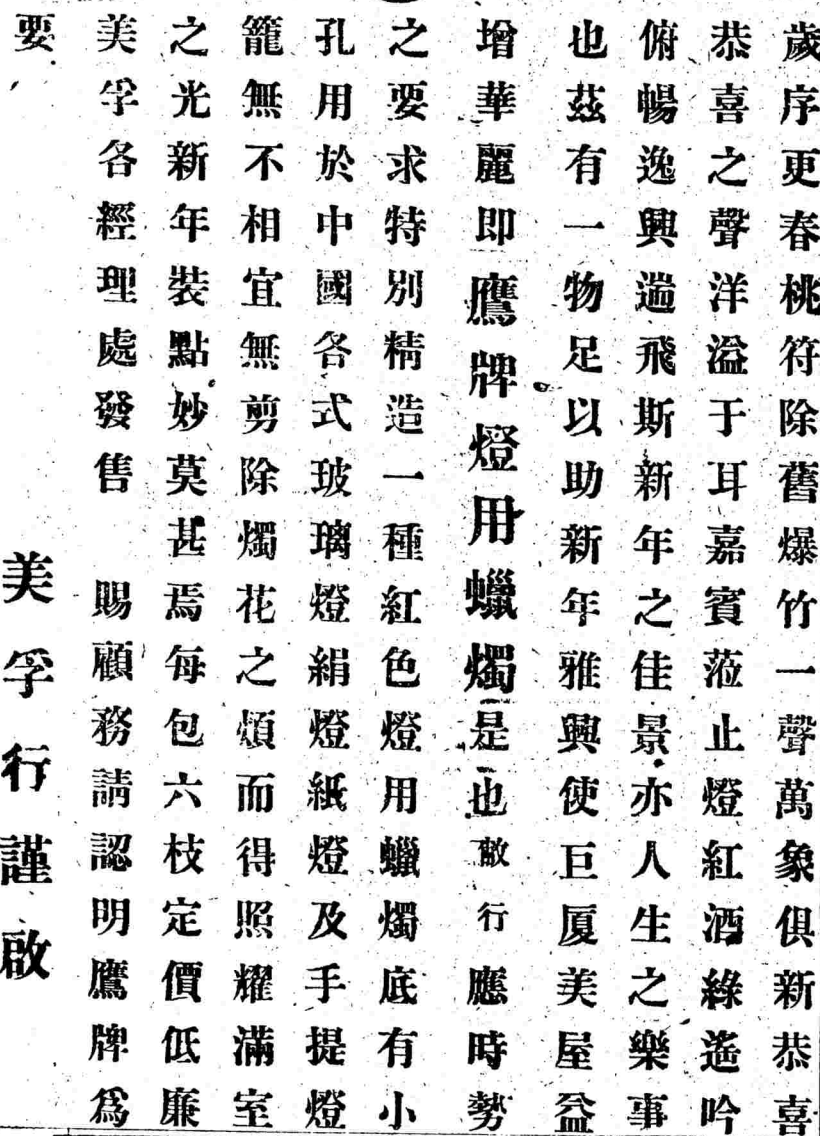 歲序更春桃符除舊爆竹一聲萬象俱新恭喜
恭喜之聲洋溢于耳嘉賓蒞止燈紅酒綠遙吟
俯暢逸興遄飛斯新年之佳景亦人生之樂事
也茲有一物足以助新年雅興使巨厦美屋益
增華麗即鷹牌燈用蠟燭是也敝行應時勢
之要求特別精造一種紅色燈用蠟燭底有小
孔用於中國各式玻璃燈絹燈紙燈及手提燈
籠無不相宜無剪除燭花之煩而得照耀滿室
之光新年裝點妙莫甚焉每包六枝定價低廉
美孚各經理處發售 賜顧務請認明鷹牌爲
要 美孚行謹啟